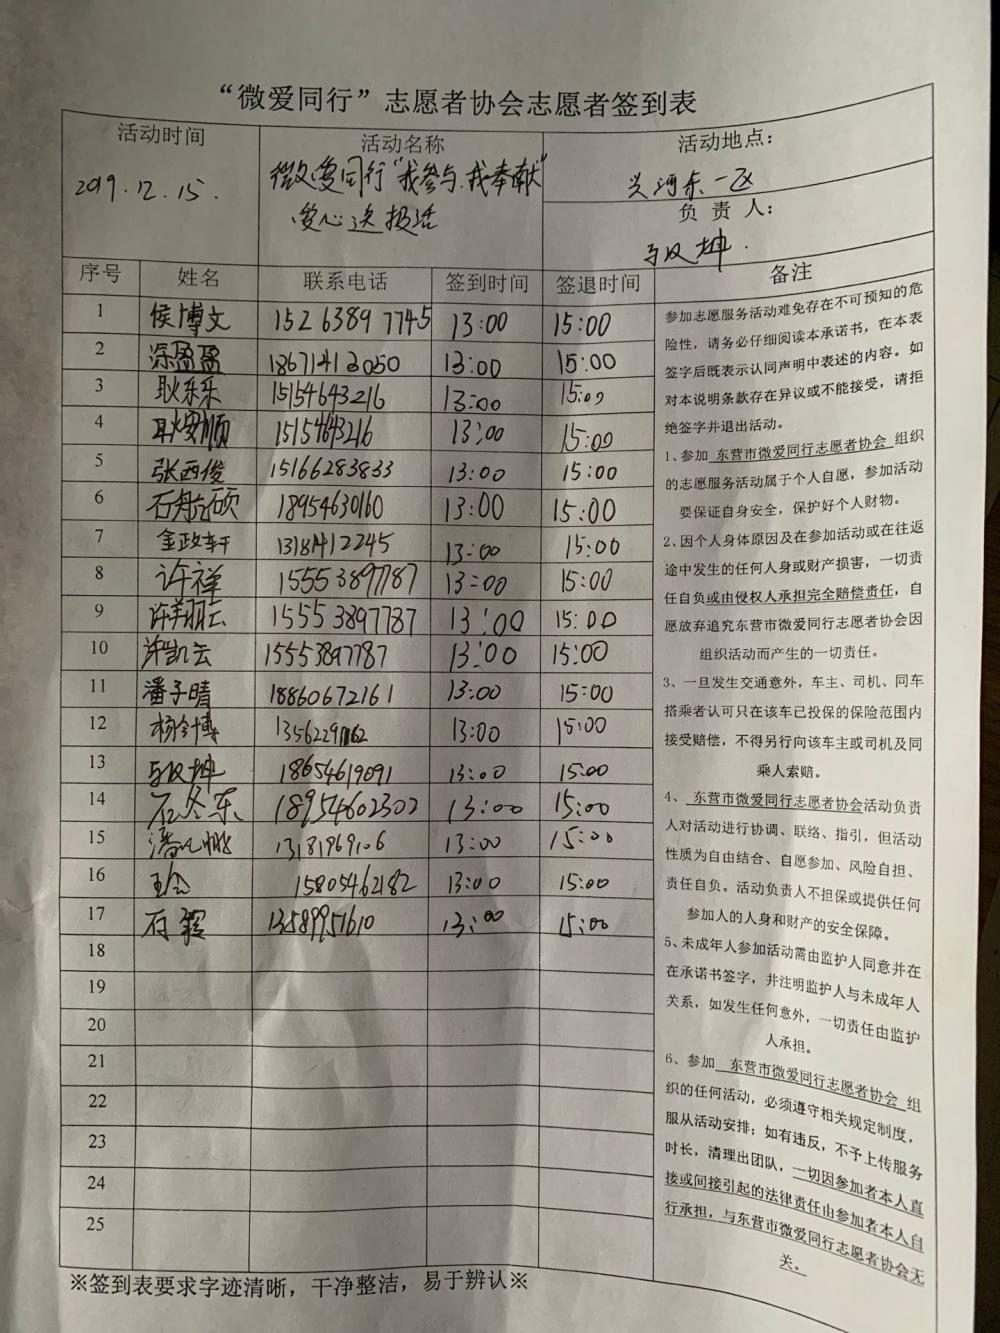 “微爱同行”志愿者协会志愿者签到表
活动时间 活动名称 活动地点：
2019.12.15. 微爱同行“我参与.我奉献” 兴河东一区
爱心送报活
负责人：
马汉坤.
序号 姓名 联系电话 签到时间 签退时间 备注
1 侯博文 15263897745 13:00 15:00
2 盈盈 13:00 15:00
3 耿乐乐 15154643216 13:00 15:00
4 15154643216 13:00 15:00
5 张西俊 15166283833 13:00 15:00
6 石航硕 18954630160 13:00 15:00
7 金政轩 13181412245 13:00 15:00
8 许祥 15553897787 13:00 15:00
9 许翔云 15553897787 13:00 15:00
10 许凯云 15553897787 13:00 15:00
11 潘子晴 18860672161 13:00 15:00
12 杨金博 13:00 15:00
13 18654619091 13:00 15:00
14 石冬东 18954602302 13:00 15:00
15 13181969106 13:00 15:00
16 15805462182 13:00 15:00
17 石 13589951610 13:00 15:00
18
19
20
21
22
23
24
25
参加志愿服务活动难免存在不可预知的危
险性，请务必仔细阅读本承诺书，在本表
签字后既表示认同声明中表述的内容。如
对本说明条款存在异议或不能接受，请拒
绝签字并退出活动。
1、参加 东营市微爱同行志愿者协会 组织
的志愿服务活动属于个人自愿，参加活动
要保证自身安全，保护好个人财物。
2、因个人身体原因及在参加活动或在往返
途中发生的任何人身或财产损害，一切责
任自负或由侵权人承担完全赔偿责任，自
愿放弃追究东营市微爱同行志愿者协会因
组织活动而产生的一切责任。
3、一旦发生交通意外，车主、司机、同车
搭乘者认可只在该车已投保的保险范围内
接受赔偿，不得另行向该车主或司机及同
乘人索赔。
4、 东营市微爱同行志愿者协会活动负责
人对活动进行协调、联络、指引，但活动
性质为自由结合、自愿参加、风险自担、
责任自负。活动负责人不担保或提供任何
参加人的人身和财产的安全保障。
5、未成年人参加活动需由监护人同意并在
在承诺书签字，并注明监护人与未成年人
关系，如发生任何意外，一切责任由监护
人承担。
6、参加 东营市微爱同行志愿者协会 组
织的任何活动，必须遵守相关规定制度，
服从活动安排；如有违反，不予上传服务
时长，清理出团队，一切因参加者本人直
接或间接引起的法律责任由参加者本人自
行承担，与东营市微爱同行志愿者协会无
关。
※签到表要求字迹清晰，干净整洁，易于辨认※